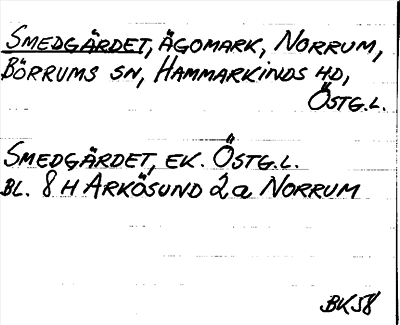 SMEDGÄRDET, ÄGOMARK, NORRUM,
BÖRRUMS SN, HAMMARKINDS HD,
ÖSTG.L.
SMEDGÄRDET, EK. ÖSTG.L.
BL. 8 H ARKÖSUND 2a NORRUM
BK58